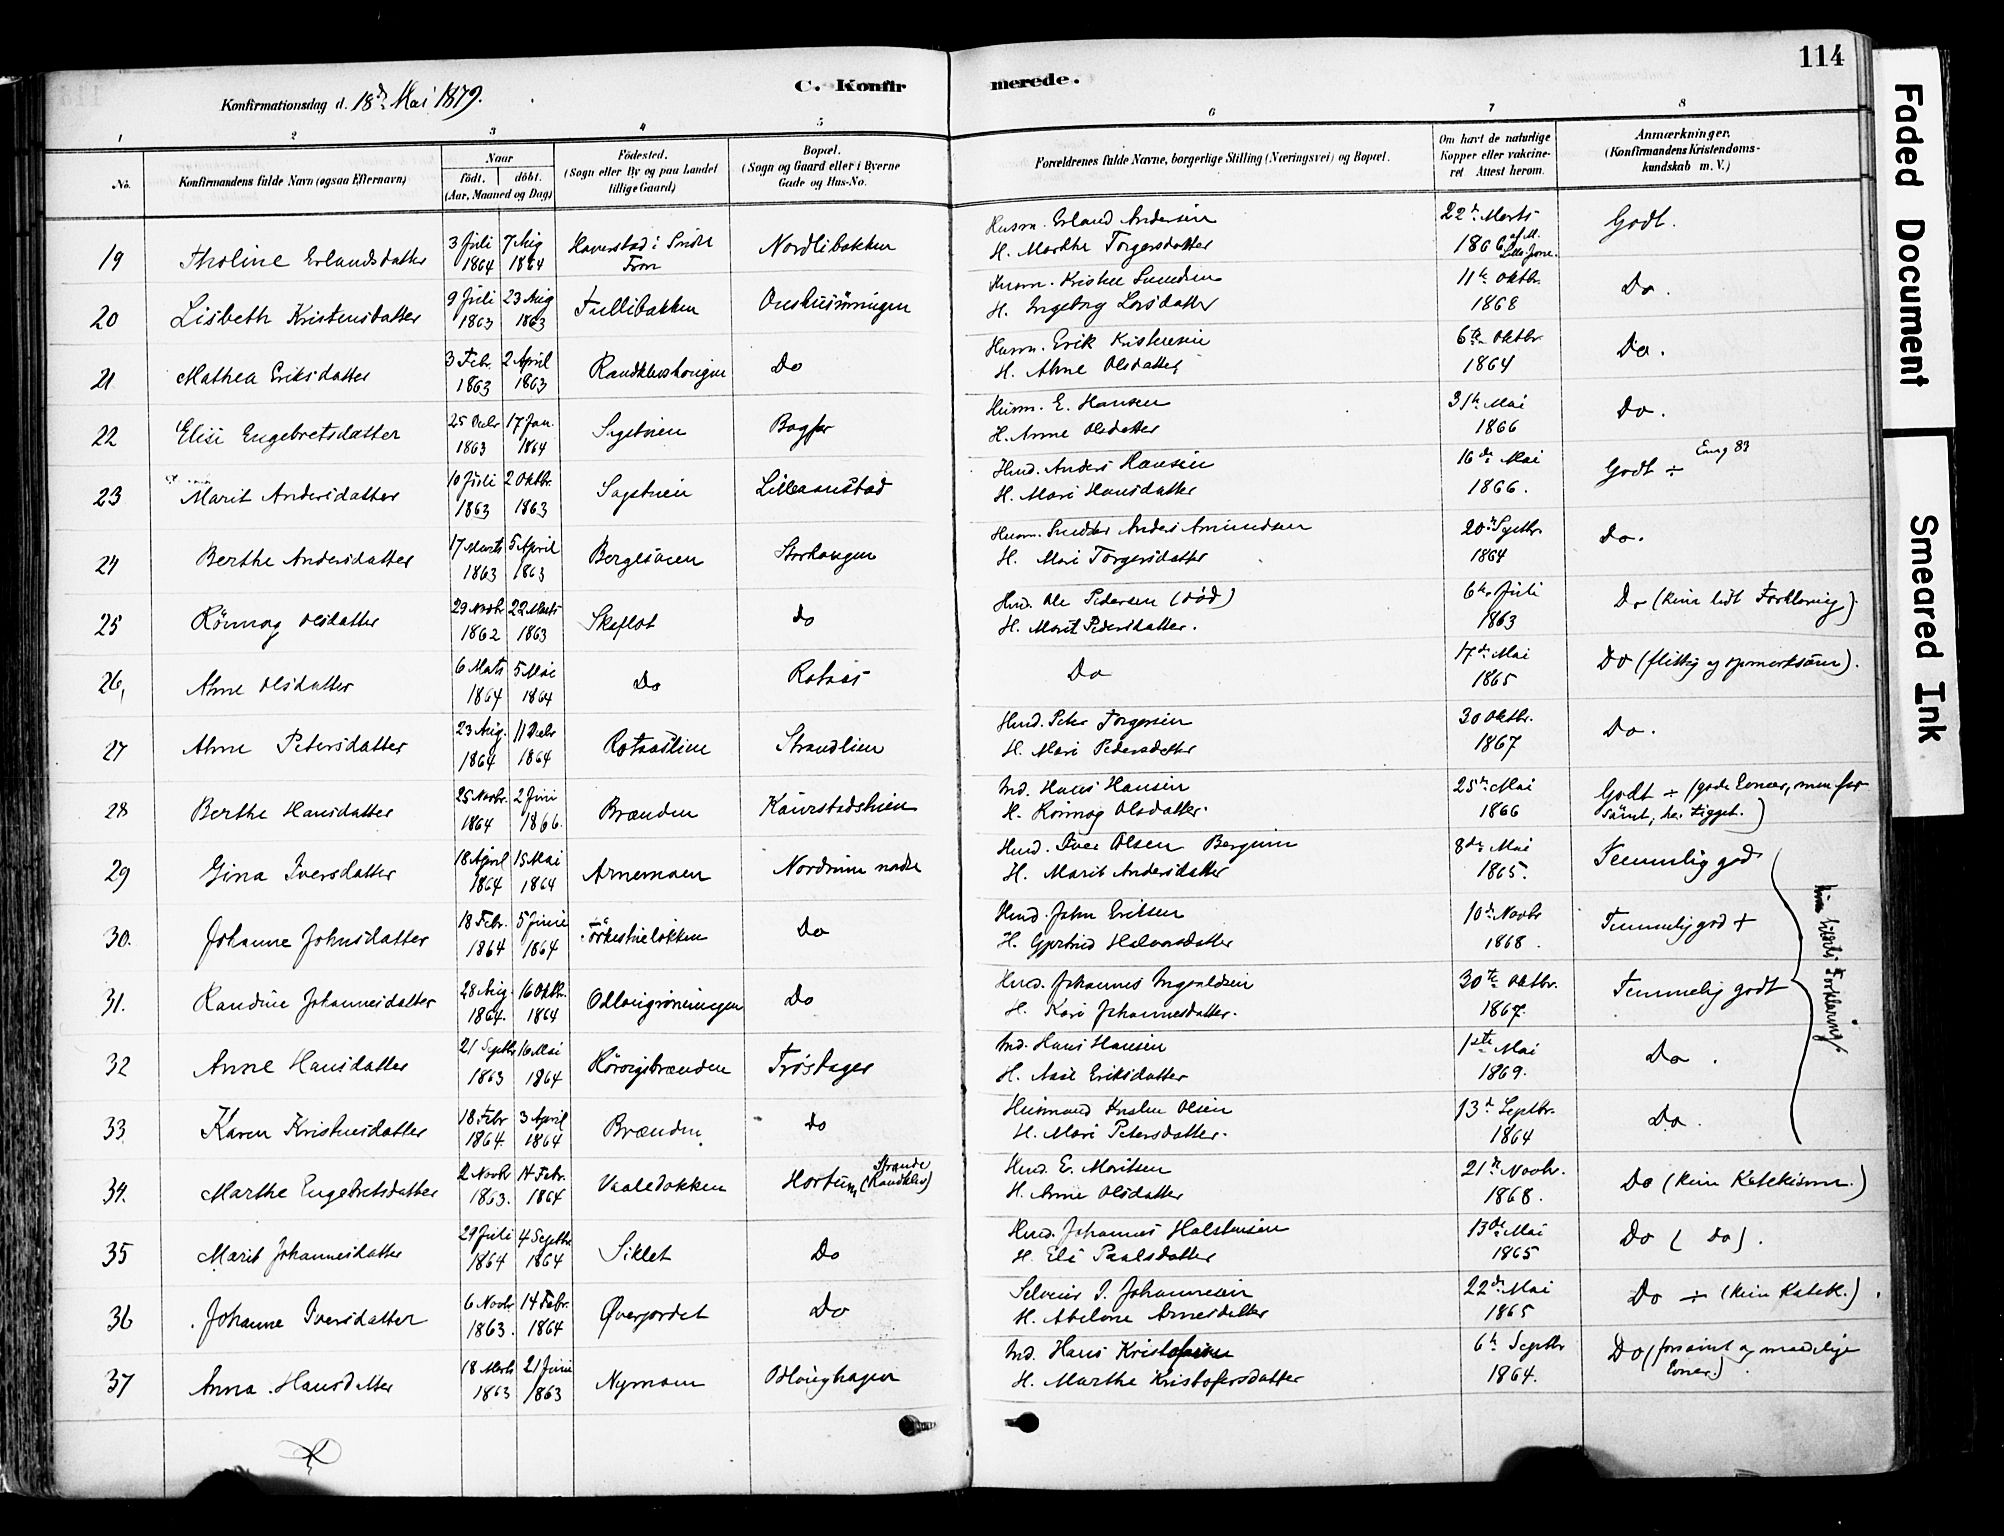 114
C. Konfirmerede.
Konfirmationsdag d. 18de Mai 1879.
1 2 3 4 5 6 7 8
No.
Konfirmandens fulde Navn (ogsaa Efternavn)
Naar
födt. döbt.
(Aar, Maaned og Dag)
Födested.
(Sogn eller By og paa Landet
tillige Gaard)
Bopæl.
(Sogn og Gaard eller i Byerne
Gade og Hus-No.
Forældrenes fulde Navne, borgerlige Stilling (Næringsvei) og Bopæl.
Om havt de naturlige
Kopper eller vakcine-
ret Attest herom.
Anmærkninger.
(Konfirmandens Kristendoms-
kundskab m. V.)
19 Tholine Erlandsdatter 3 Juli 1864 7 Aug 1864 Haverstad i Söndre Fron Nordlibakken Husm. Erland Andersen H. Marthe Torgersdatter 22 Marts 1866 Godt.
20 Lisbeth Kristensdatter 9 Juli 1863 23 Aug 1863 Tullibakken Husm. Kristen H. Ingeborg Larsdatter 11te Oktbr. 1868 Do.
21 Mathea Eriksdatter 3 Febr. 1863 2 April 1863 Randklevhougen Do Husm. Erik Kristensen H. Anne Olsdatter 6te Oktbr. 1864 Do.
22 Elisi Engebretsdatter 25 Decbr 1863 17 Jan. 1864 Sygstuen Husm. E. Hansen H. Anne Olsdatter 31te Mai 1866 Do.
23 Marit Andersdatter 10 Juli 1863 2 Oktbr. 1863 Sagstuen Lilleaanstad Husmd. Anders Hansen H. Mari Hansdatter 16de Mai 1866. Godt ÷
24 Berthe Andersdatter 17 Marts 1863 5 April 1863 Bergesveen Storhaugen Husm. Anders Amundsen H. Mari Torgersdatter 20 Septbr. 1864 Do.
25 Rönnog Olsdatter 29 Novbr 1862 22 Marts 1863 Skeflot Do Husmd. Ole Pedersen (död) H. Marit Pedersdatter. 6te Juli 1863 Do (kun lidt Forklaring).
26, Anne Olsdatter 6 Marts 1864 5 Mai 1864 Do Rotaas Do 17de Mai 1865 Do (flittig og opmerksom).
27 Anne Petersdatter 23 Aug. 1864 11 Decbr 1864 Rotaaslien Strandlien Husmd. Peter Torgersen H. Mari Pedersdatter 30 Oktbr. 1867 Do.
28 Berthe Hansdatter 25 Novbr. 1864 2 Juni 1866. Brænden Kaurstadstuen Ind. Hans Hansen H. Rönnog Olsdatter. 25te Mai 1866 Godt ÷ (gode Evner, men forsömt, har tigget.)
29 Gina Iversdatter 18 April 1864 15 Mai 1864 Arnemoen Nordrum nedre Husmd. Iver Olsen Bergum H. Marit Andersdatter 8de Mai 1865. Temmelig god
30. Johanne Johnsdatter 18 Febr. 1864 5 Juni 1864 Do Husmd. John Eriksen H. Gjertrud Halvorsdatter 10de Novbr 1868. Temmelig god +
31. Randine Johannesdatter 28 Aug. 1864. 16 Oktbr. 1864 Odlougröningen Do Husmd. Johannes Ingvaldsen H. Kari Johannesdatter. 30te Oktbr. 1867. Temmelig godt
32 Anne Hansdatter 21 Septbr 1863 16 Mai 1864 Rörvigsbrænden Tröstager Ind. Hans Hansen H. Aase Eriksdatter 1ste Mai 1869. Do.
33. Karen Kristensdatter 18 Febr 1864. 3 April 1864 Brænden Do Husmand Kristen Olsen H. Mari Petersdatter. 13 Septbr. 1864 Do.
kun lidt i Forklaring
34. Marthe Engebretsdatter 2 Novbr 1863. 14 Febr. 1864 Vaaledokken Hortun (Strande Randklev) Husmd. E. Moritsen H. Anne Olsdatter 21te Novbr. 1868. Do (kun Katekismn.)
35 Marit Johannesdatter 29 Juli 1864 4 Septbr 1864 Siklet Do Husmd. Johannes Halstensen H. Eli Paalsdatter 13de Mai 1865 Do (Do).
36 Johanne Iversdatter 6 Novbr 1863. 14 Febr. 1864 Øverjordet Do Selveier I. Johannesen H. Abelone Arnesdatter 22de Mai 1865 Do ÷ (kun Katek.).
37 Anna Hansdatter 18 Marts 1863 21 Juni 1863 Nymoen Odloughagen Ind. Hans Kristofersen H. Marthe Kristofersdatter 6te Septbr 1864. Do (forsömt og maadelige Evner)
Faded Document
Smeared Ink